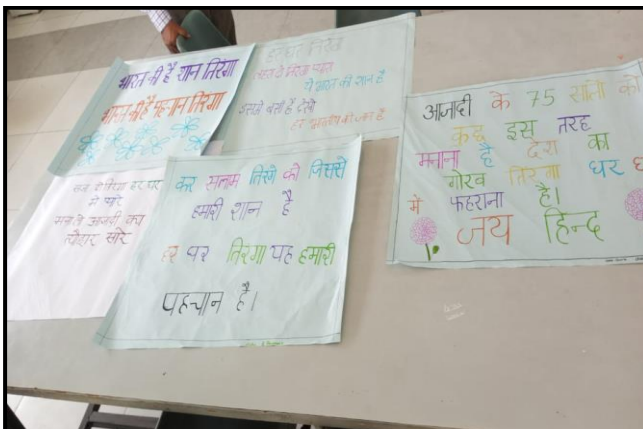 भारत की है शान तिरंगा
भारत की है पहचान तिरंगा
हर घर तिरंगा
ये भारत की शान है
इसमें बसी है देखो
हर भारतीय की जान है
आजादी के 75 सालों को
कुछ इस तरह
मनाना है देश का
गौरव तिरंगा घर घ
में फहराना है।
जय हिन्द
हर घर
में प्यारे
आजादी का
त्योहार सारे
कर सलाम तिरंगे को जिससे
हमारी शान है
हर घर तिरंगा यह हमारी
पहचान है।